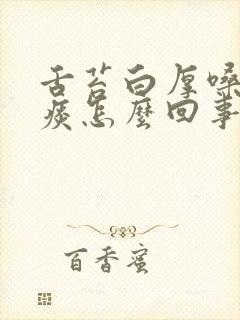 舌苔白厚嗓
痰怎麼回事
百香蜜